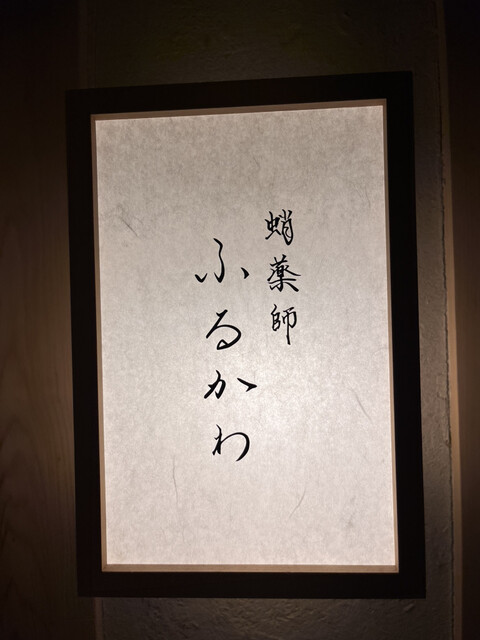 蛸薬師
ふるかわ